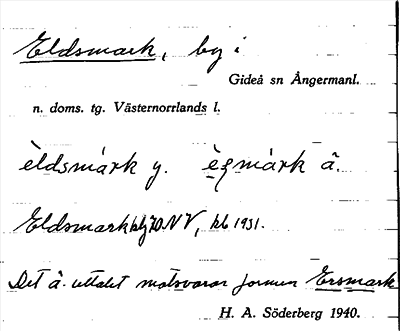 Eldsmark, by i
Gideå sn Ångermanl.
n. doms. tg. Västernorrlands l.
èldsmárk y. márk ä.
Eldsmark NV, kb 1931.
Det ä. uttalet motsvarar formen Ersmark
H. A. Söderberg 1940.